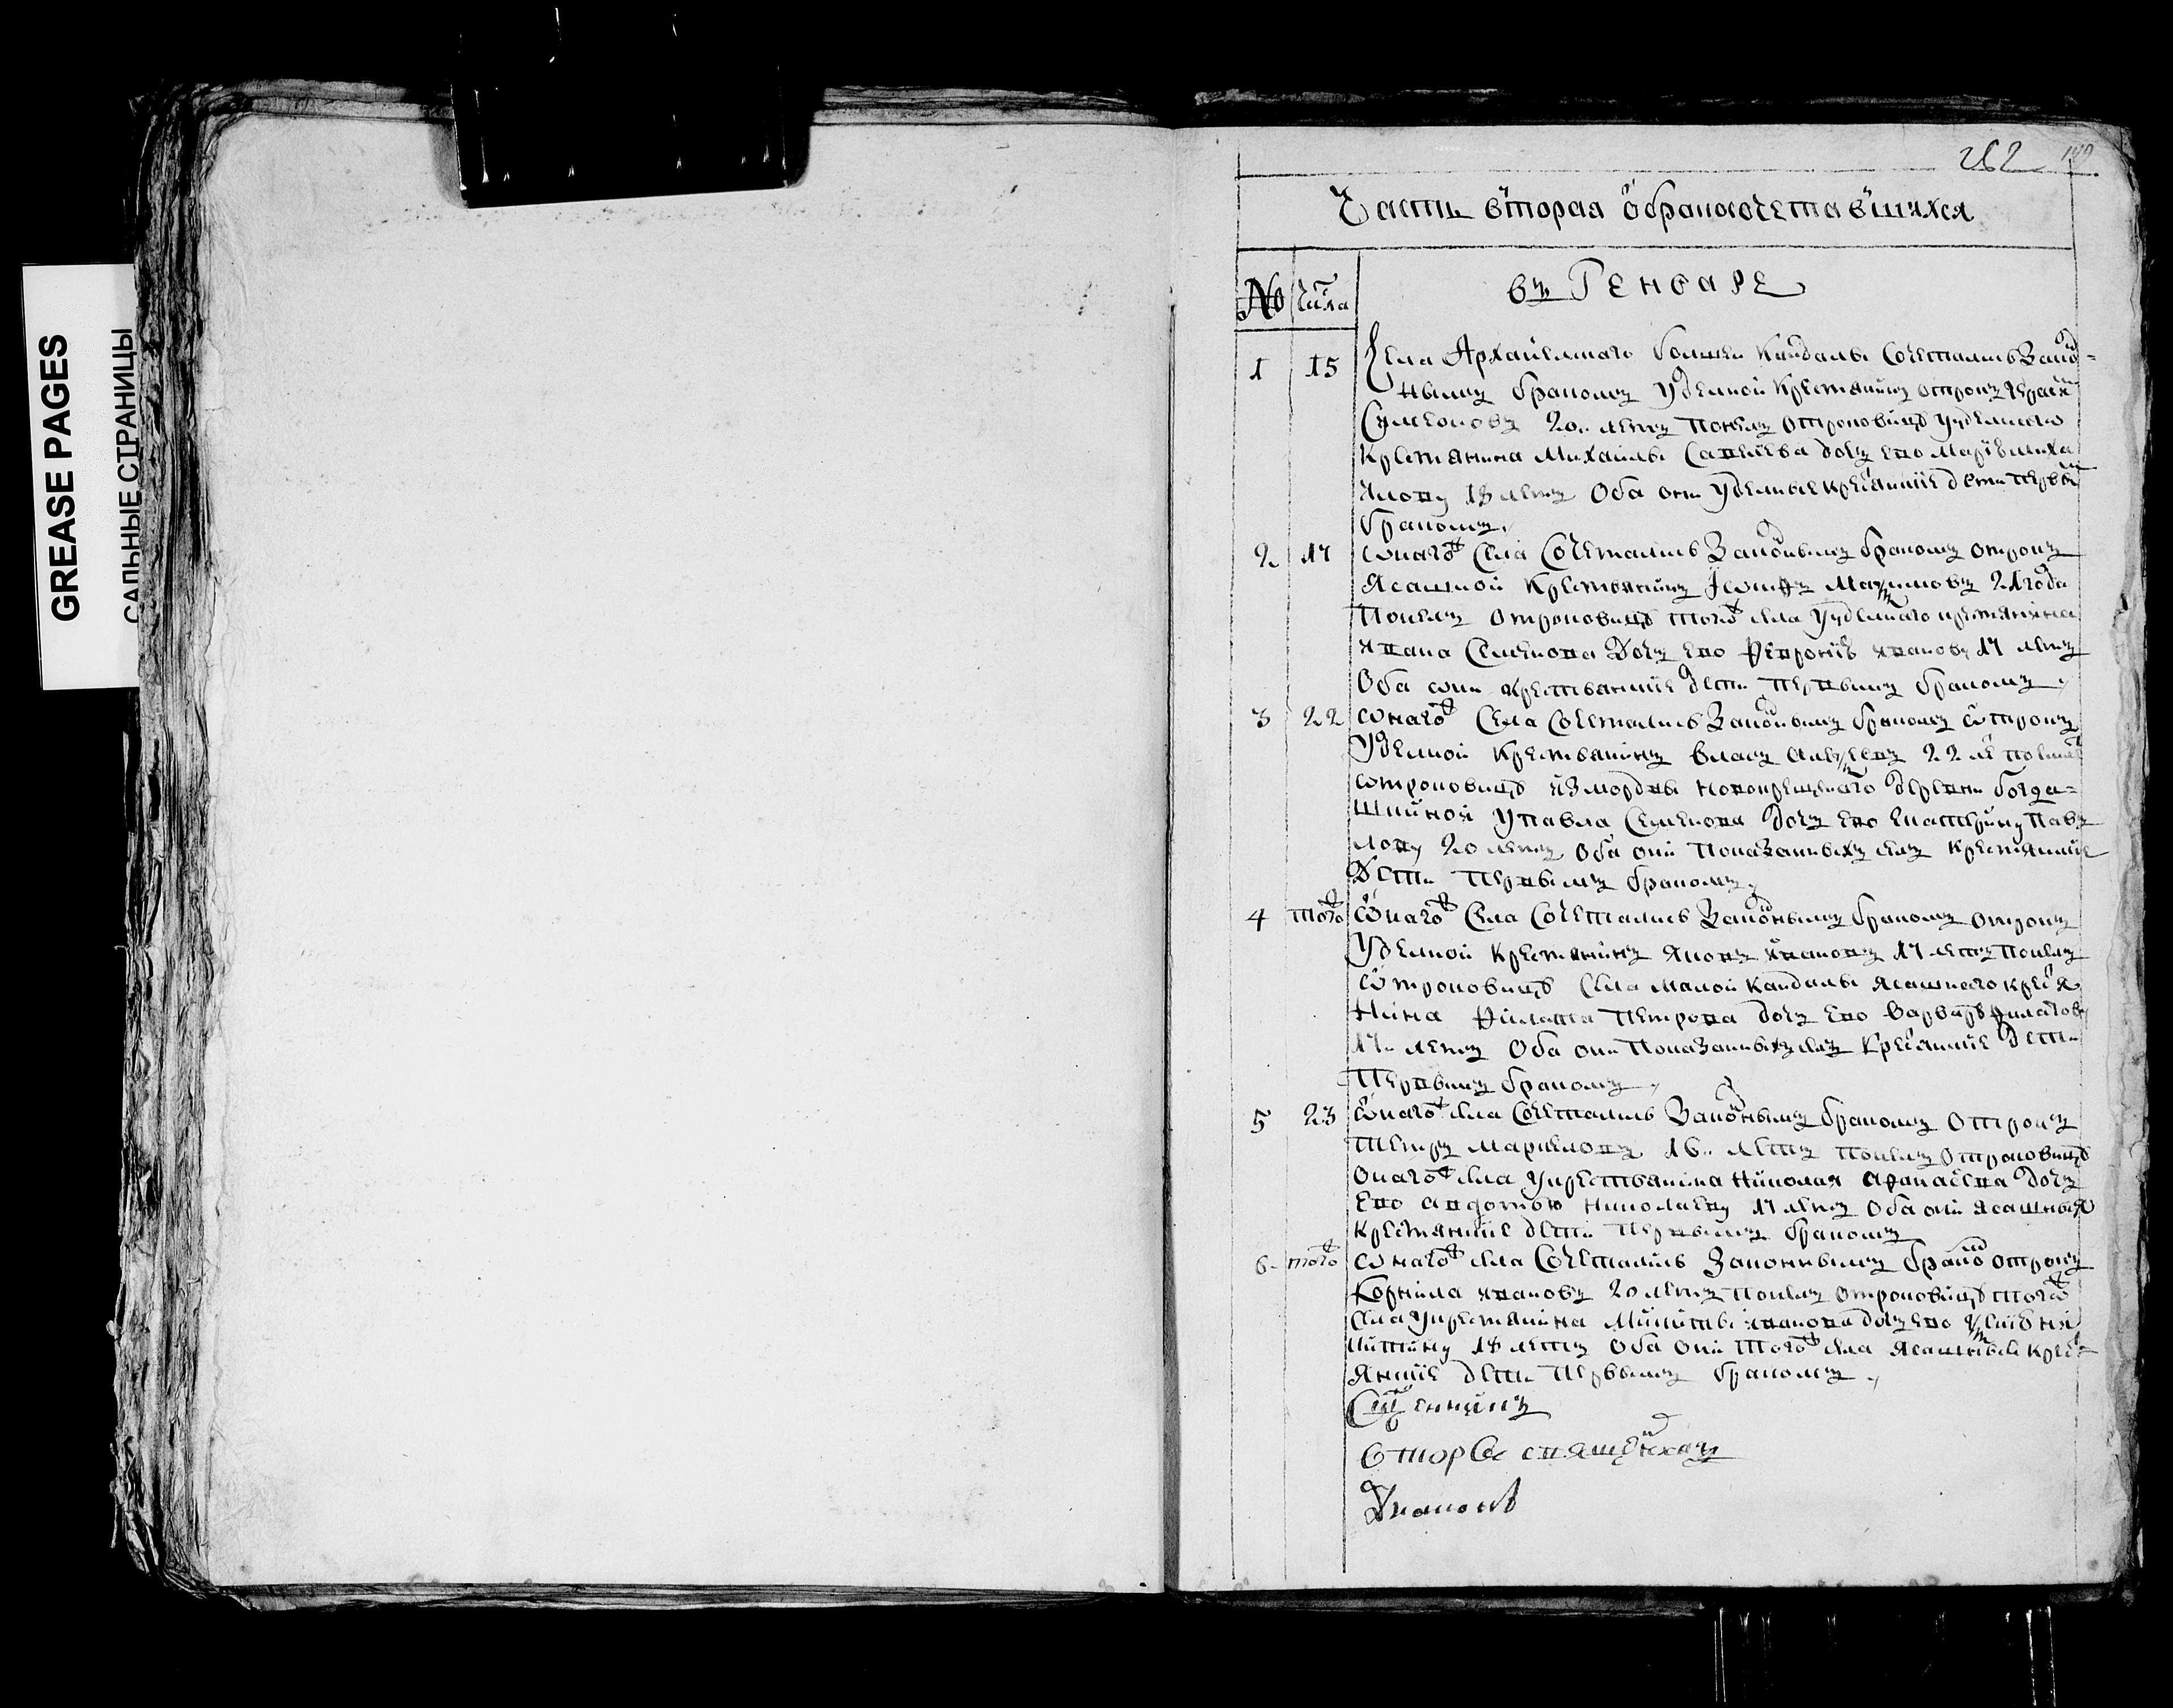 GREASE PAGES
САЛЬНЫЕ СТРАНИЦЫ
262
Часть вторая обракосочетавшихся
№ числа
въ Генваре
1 15 Села Архангелскаго болшей Кандалы Сочеталисъ Закон-
нымъ бракомъ Уделной Крестьянинъ отрокъ
Сумеоновъ 20 летъ Понелъ отроковицѣ уделнаго
Крестьянина Михаилы Савелева дочь ево Марью Миха
илову 18 летъ Оба они уделные крестьянские дети первым
бракомъ
2 17 онаго ж Села Сочеталисъ Законнымъ бракомъ отрокъ
Ясашной Крестьянинъ Иосифъ Максимовъ 21 года
Понелъ отроковицѣ того ж села уделнаго крестьянина
Ивана Семенова Дочь ево Февронию иванову 17 летъ
Оба они крестьянские дети первымъ бракомъ
3 22 онаго ж Села Сочеталисъ Законнымъ бракомъ отрокъ
Уделной Крестьянинъ Власъ Алексеевъ 22 ле понелъ
отроковицѣ измордвы новокрещенаго деревни богда-
шкиной у Павла Семенова дочь ево екатерину Пав
лову 20 летъ Оба они Показанныхъ селъ Крестьянские
Дети первымъ бракомъ
4 того ж онаго ж Села Сочеталисъ Законнымъ бракомъ отрокъ
Уделной Крестьянинъ Яковъ ивановъ 17 летъ Понелъ
отроковицѣ Села малой Кандалы Ясашнаго крестья
нина Филата Петрова дочь ево варвару Филатову
17 летъ Оба они Показанныхъ селъ Крестьянские дети
Первымъ бракомъ
5 23 онаго ж села Сочеталисъ Законнымъ бракомъ Отрокъ
Петръ Маркеловъ 16 летъ понелъ отроковицѣ
онаго ж села у крестьянина Николая Афанасева дочь
ево Авдотью николаеву 17 летъ Оба они ясашныя
крестьянские дети Первымъ бракомъ
6 того ж онаго ж села Сочеталисъ Законнымъ браком отрокъ
Корнила ивановъ 20 летъ понелъ отроковицѣ того ж
села у крестьянина Микиты иванова дочь ево Ксению ни
китину 18 летъ Оба они того ж села Ясашныи крест-
янские дети Первымъ бракомъ
Священникъ
Диаконъ